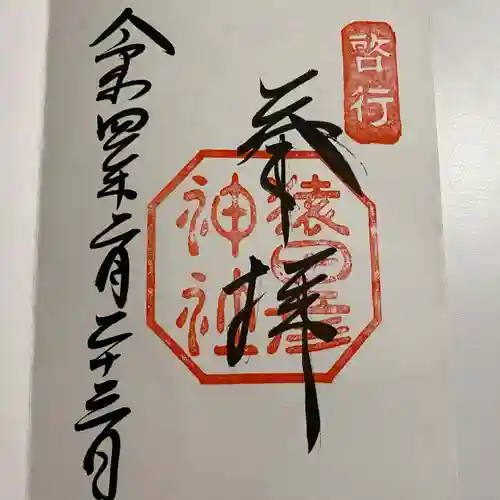 啓行
奉拝
猿田彦
神社
神社
令和四年二月二十三日